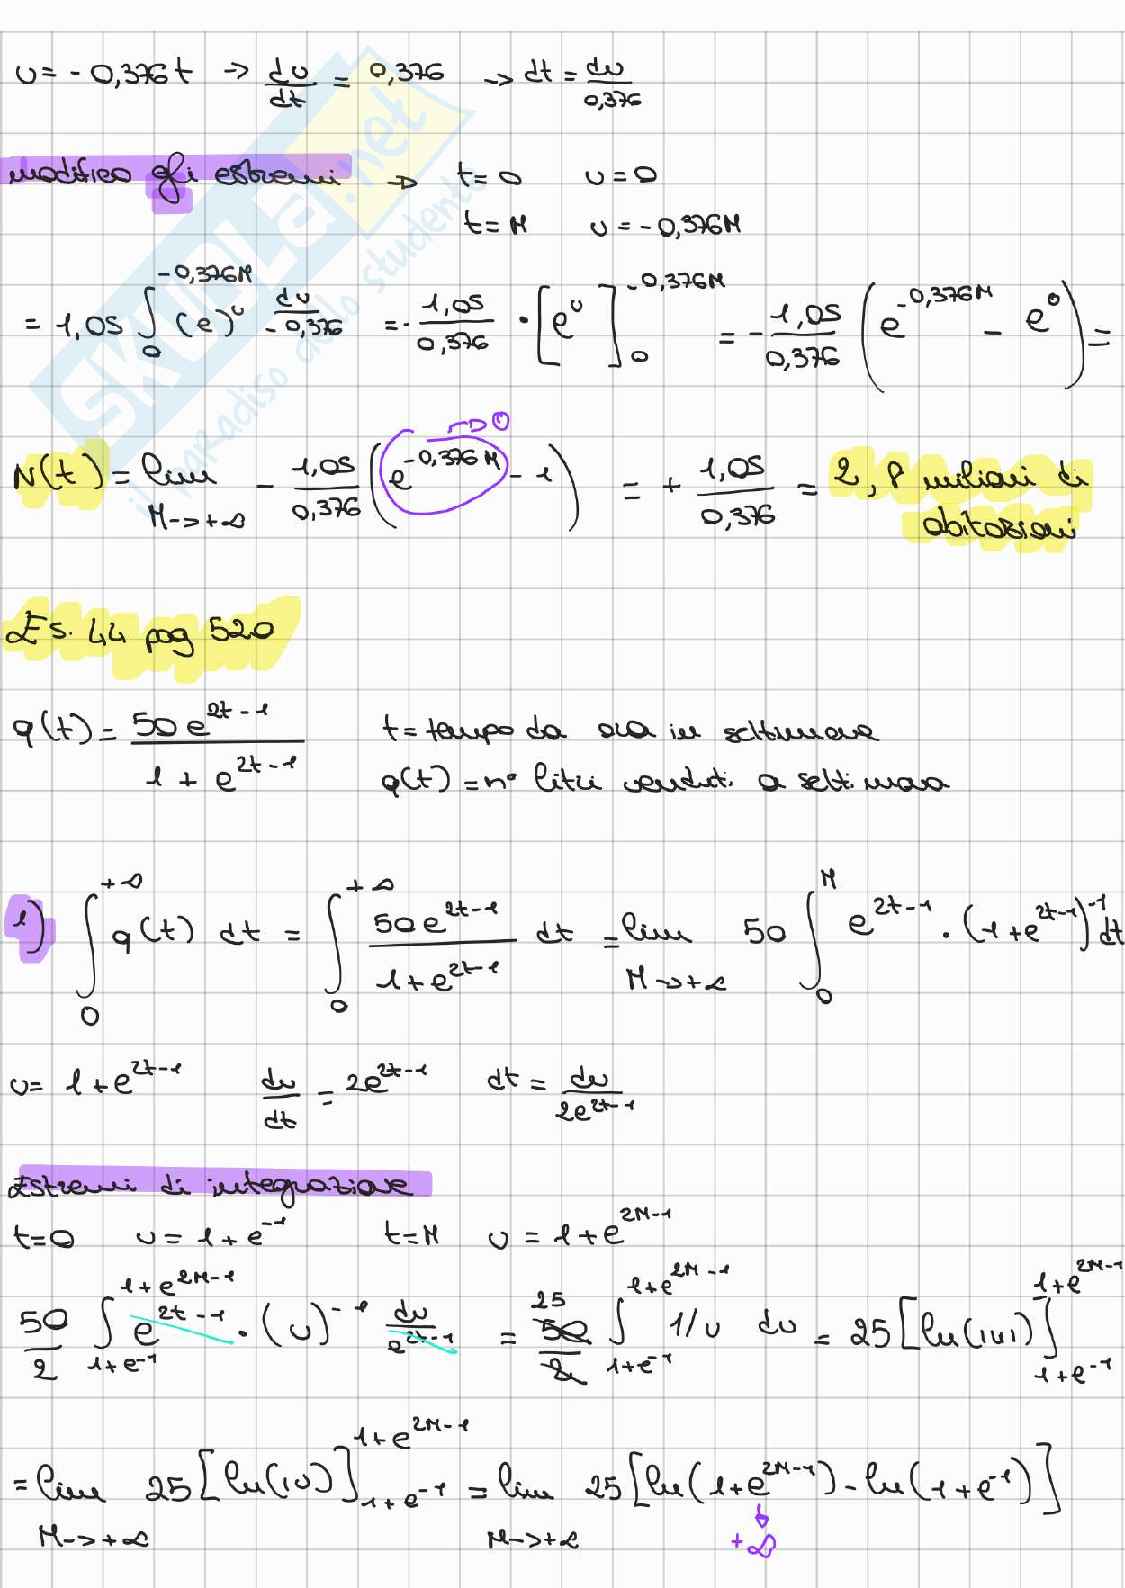 u = - 0,376t → du/dt = 0,376 → dt = du/0,376
modifico gli estremi → t=0 u=0
t=M u=-0,376M
= 1,05 ∫₀^{-0,376M} (e)^u du/-0,376 = - 1,05/0,376 · [e^u]₀^{-0,376M} = - 1,05/0,376 (e^{-0,376M} - e^0) =
→0
N(t) = lim M→+∞ - 1,05/0,376 (e^{-0,376M} - 1) = + 1,05/0,376 = 2,8 milioni di
abitazioni
Es. 44 pag 520
q(t) = 50e^{2t-1} / 1+e^{2t-1} t = tempo da ora in settimane
q(t) = n° litri venduti a settimana
1) ∫₀^{+∞} q(t) dt = ∫₀^{+∞} 50e^{2t-1}/1+e^{2t-1} dt = lim M→+∞ 50 ∫₀^M e^{2t-1} · (1+e^{2t-1})^{-1} dt
u = 1+e^{2t-1} du/dt = 2e^{2t-1} dt = du/2e^{2t-1}
Estremi di integrazione
t=0 u = 1+e^{-1} t=M u = 1+e^{2M-1}
50/2 ∫_{1+e^{-1}}^{1+e^{2M-1}} e^{2t-1} · (u)^{-1} du/e^{2t-1} = 25 50/2 ∫_{1+e^{-1}}^{1+e^{2M-1}} 1/u du = 25 [ln(|u|)]_{1+e^{-1}}^{1+e^{2M-1}}
= lim M→+∞ 25 [ln(|u|)]_{1+e^{-1}}^{1+e^{2M-1}} = lim M→+∞ 25 [ln(1+e^{2M-1}) - ln(1+e^{-1})]
+∞
SKUOLA.net
il paradiso dello studente